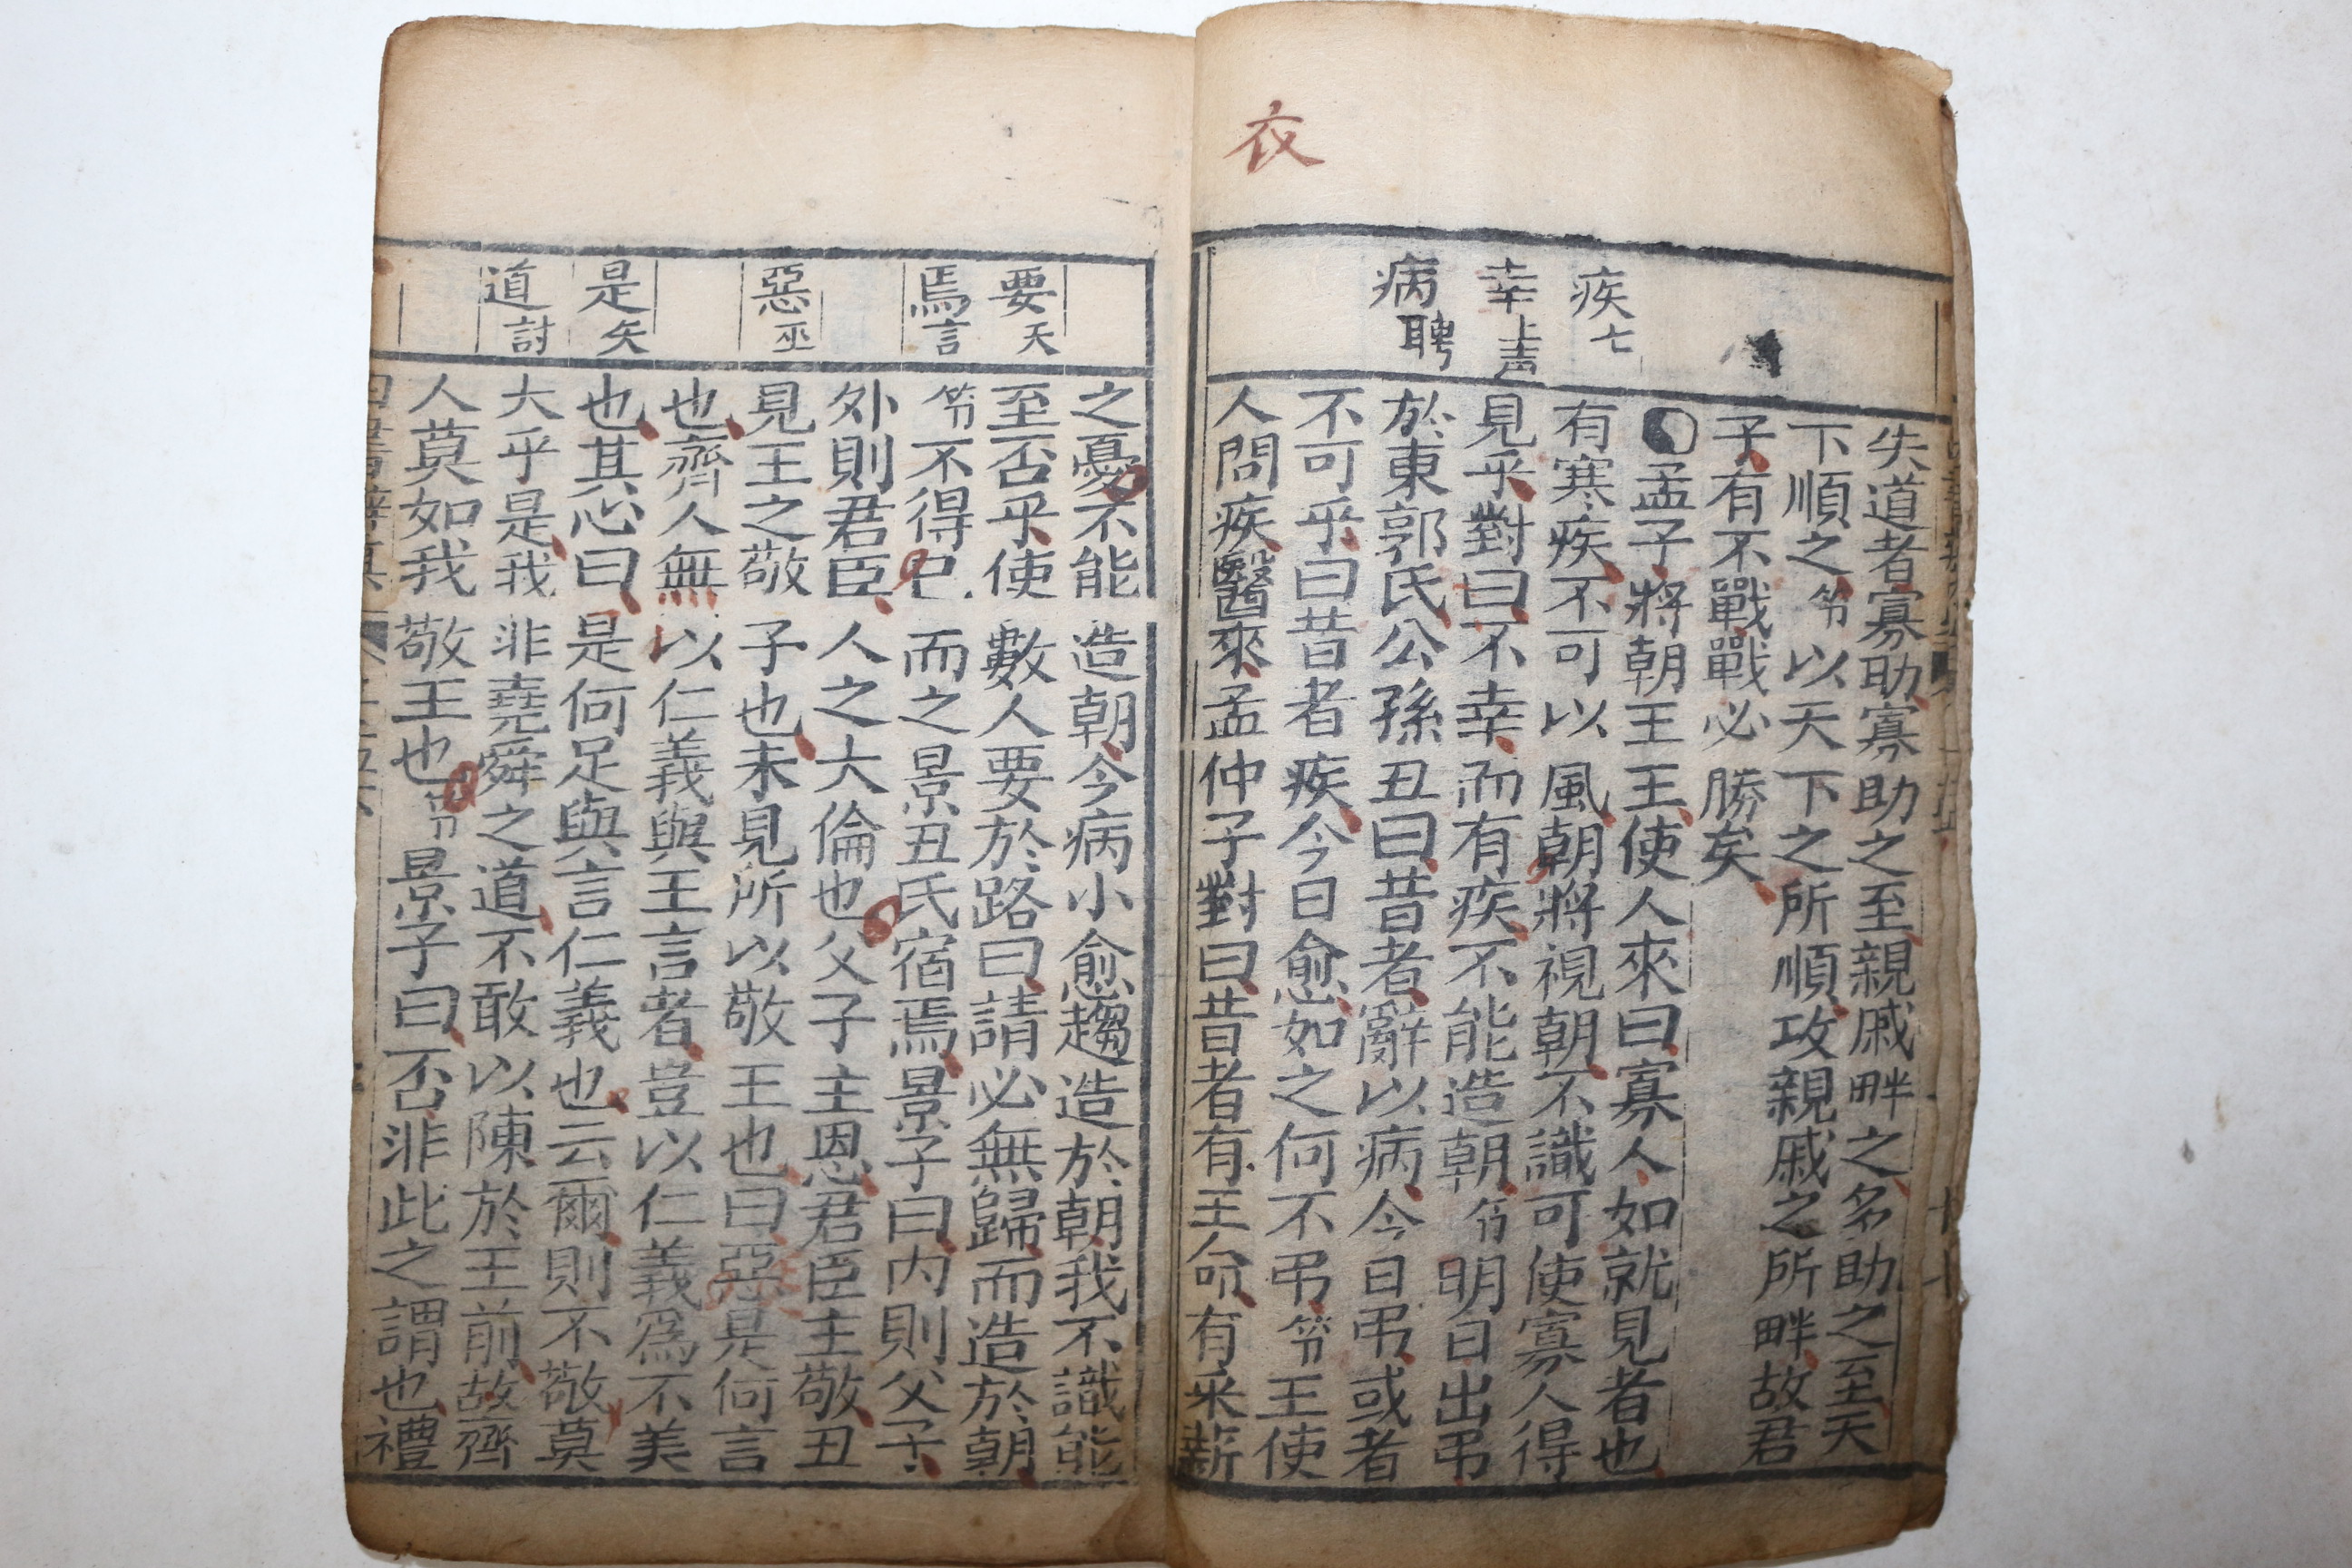 衣
疾七
幸上声
病聘
失道者寡助寡助之至親戚畔之多助之至天
下順之䇭以天下之所順攻親戚之所畔故君
子有不戰戰必勝矣
孟子將朝王王使人來曰寡人如就見者也
有寒疾不可以風朝將視朝不識可使寡人得
見乎對曰不幸而有疾不能造朝䇭明日出弔
於東郭氏公孫丑曰昔者辭以病今日弔或者
不可乎曰昔者疾今日愈如之何不弔䇭王使
人問疾醫來孟仲子對曰昔者有王命有采薪
要天
焉言
惡巫
是矢
道討
之憂不能造朝今病小愈趨造於朝我不識能
至否乎使數人要於路曰請必無歸而造於朝
䇭不得已而之景丑氏宿焉景子曰内則父子
外則君臣人之大倫也父子主恩君臣主敬丑
見王之敬子也未見所以敬王也曰惡是何言
也齊人無以仁義與王言者豈以仁義爲不美
也其心曰是何足與言仁義也云爾則不敬莫
大乎是我非堯舜之道不敢以陳於王前故齊
人莫如我敬王也䇭景子曰否非此之謂也禮